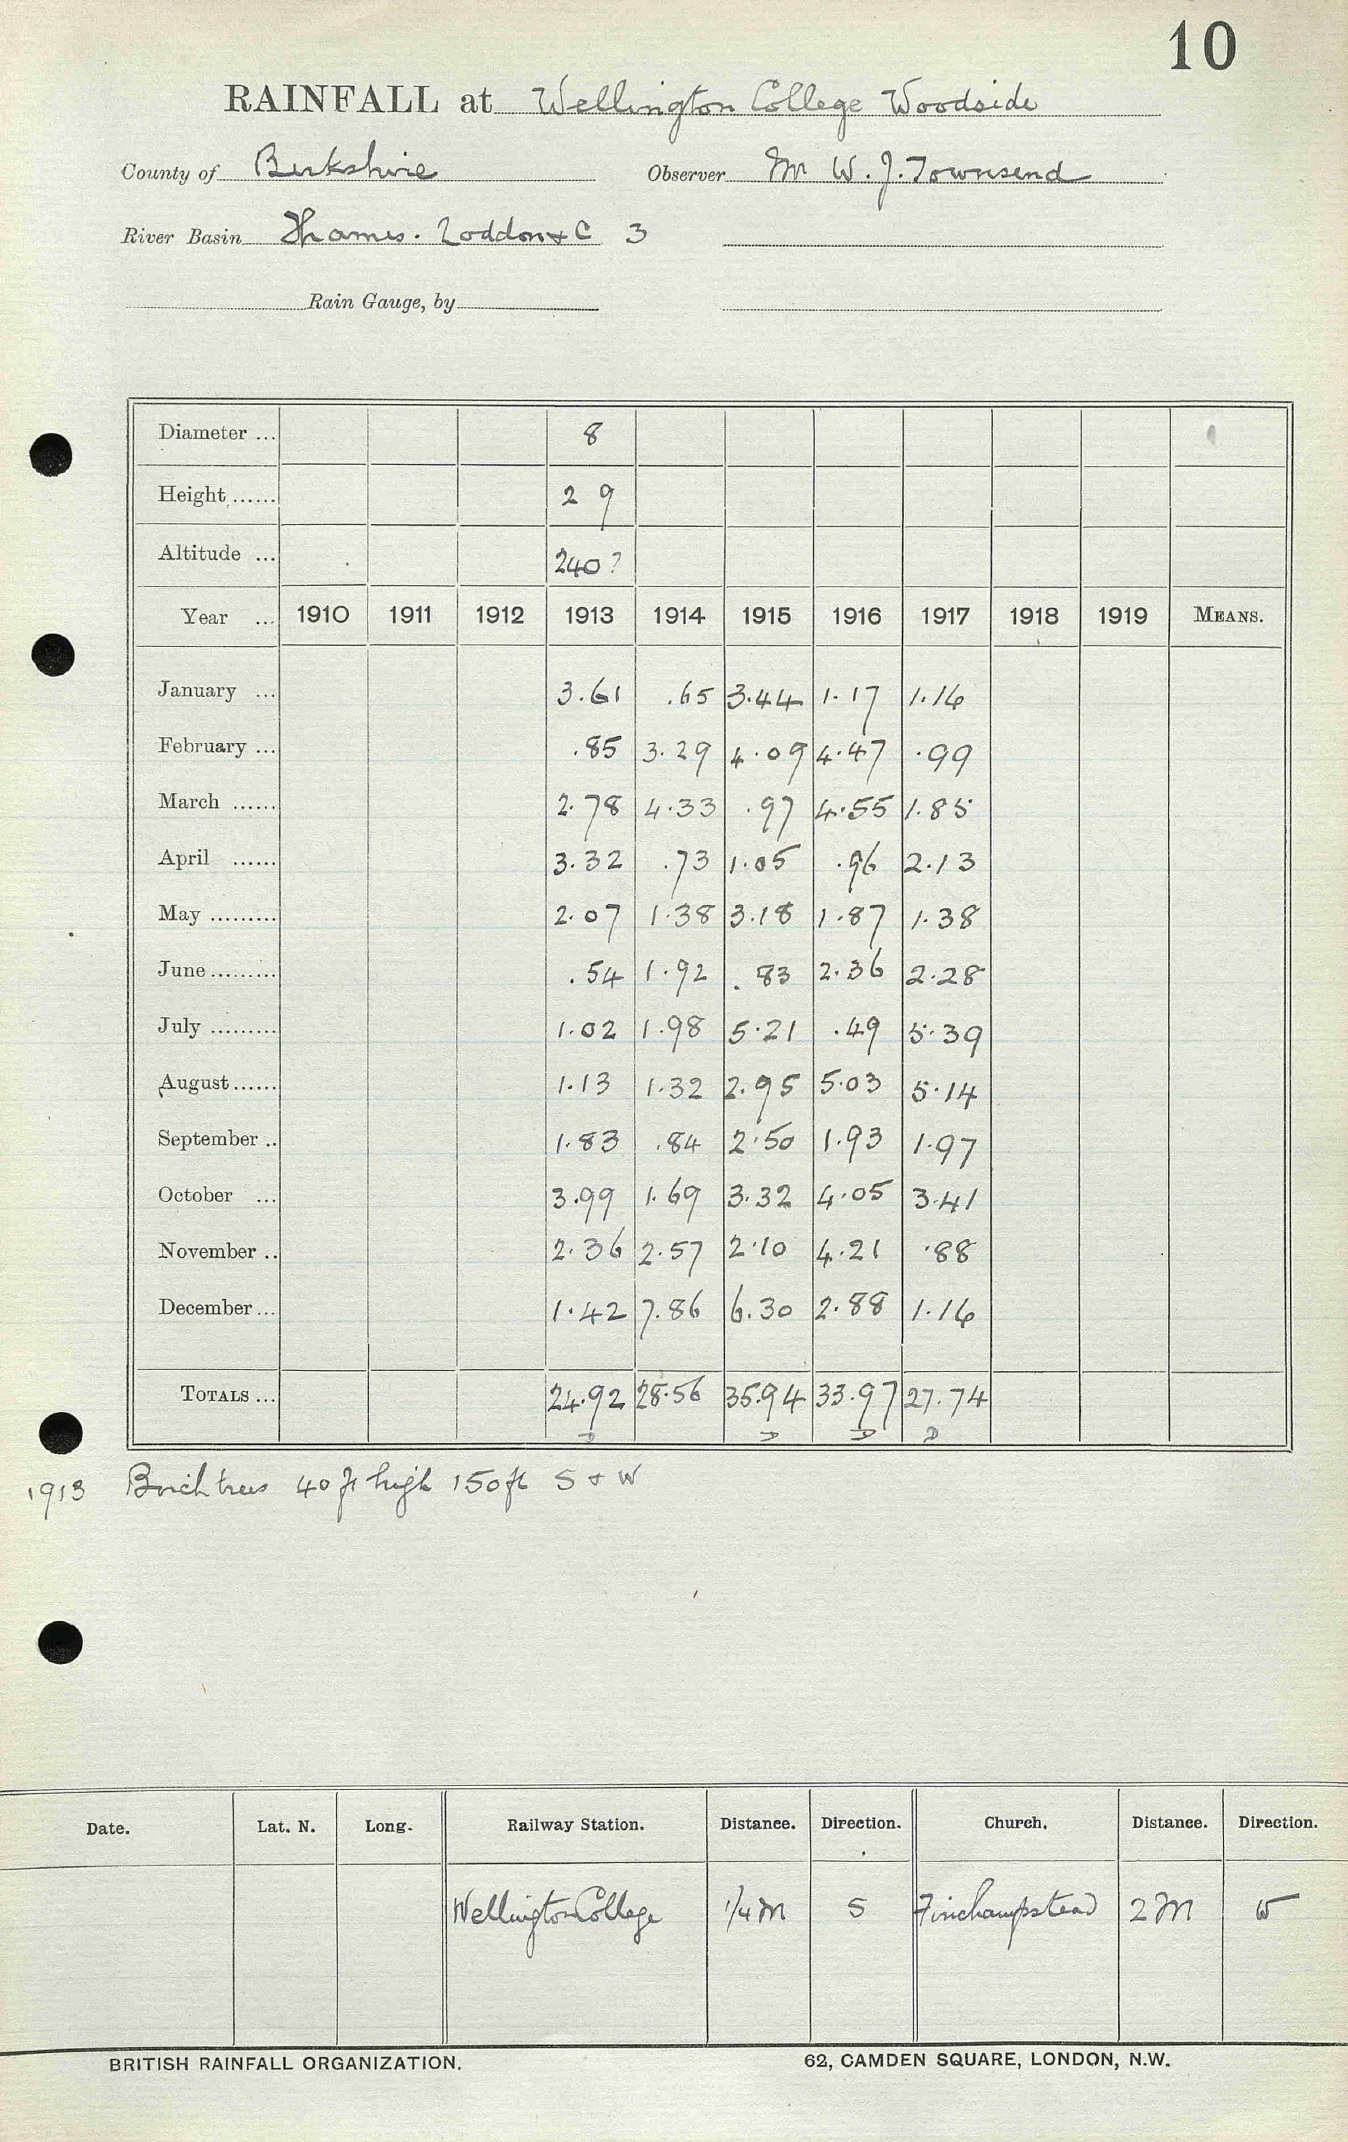 10
RAINFALL at Wellington College Woodside
County of Berkshire Observer Mr W. J. Townsend
River Basin Thames. Loddon & C 3
Rain Gauge, by
Diameter ... 8
Height ...... 2 9
Altitude ... 240?
Year ... 1910 1911 1912 1913 1914 1915 1916 1917 1918 1919 MEANS.
January ... 3.61 .65 3.44 1.17 1.16
February ... .85 3.29 4.09 4.47 .99
March ...... 2.78 4.33 .97 4.55 1.85
April ...... 3.32 .73 1.05 .96 2.13
May ......... 2.07 1.38 3.18 1.87 1.38
June ......... .54 1.92 .83 2.36 2.28
July ......... 1.02 1.98 5.21 .49 5.39
August ...... 1.13 1.32 2.95 5.03 5.14
September .. 1.83 .84 2.50 1.93 1.97
October ... 3.99 1.69 3.32 4.05 3.41
November .. 2.36 2.57 2.10 4.21 .88
December ... 1.42 7.86 6.30 2.88 1.16
TOTALS ... 24.92 28.56 35.94 33.97 27.74
D D D D
1913 Birch trees 40 ft high 150 ft S & W
Date. Lat. N. Long. Railway Station. Distance. Direction. Church. Distance. Direction.
Wellington College 1/4 M S Finchampstead 2 M W
BRITISH RAINFALL ORGANIZATION. 62, CAMDEN SQUARE, LONDON, N.W.